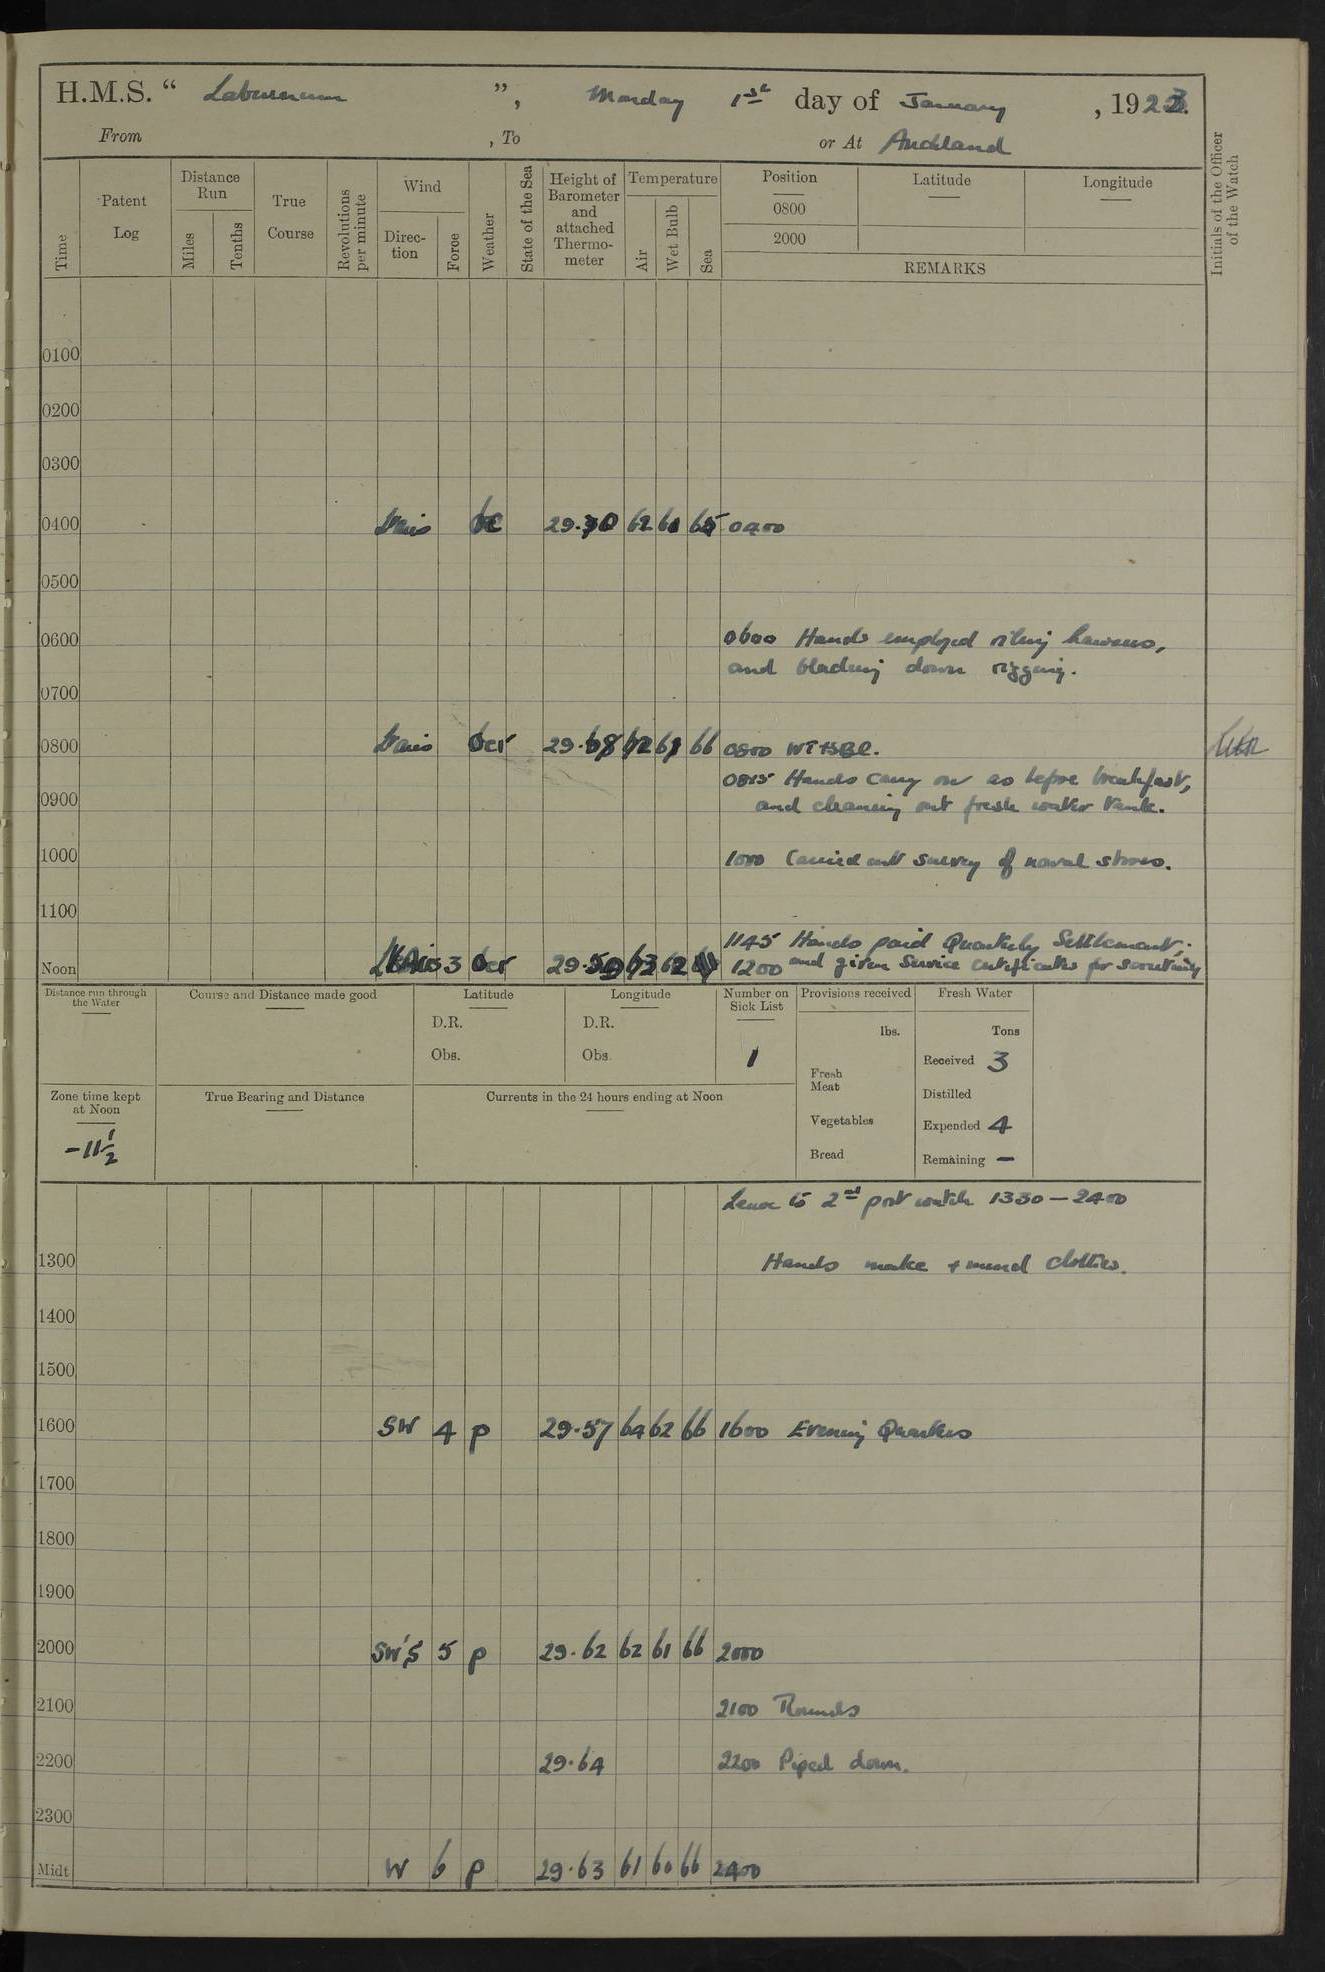 H.M.S. “ Laburnum ”, Monday 1st day of January , 1923.
From , To or At Auckland
Time
Patent Log
Distance Run
Miles
Tenths
True Course
Revolutions per minute
Wind
Direction
Force
Weather
State of the Sea
Height of Barometer and attached Thermometer
Temperature
Air
Wet Bulb
Sea
Position
0800
2000
Latitude
Longitude
REMARKS
Initials of the Officer of the Watch
0100
0200
0300
0400 Vario bc 29.70 62 61 65 0400
0500
0600 0600 Hands employed oiling hawsers,
and blacking down rigging.
0700
0800 Vario bcr 29.68 62 61 66 0800
0815 Hands carry on as before breakfast,
0900 and cleaning out fresh water tank.
1000 1000 Carried out survey of naval stores.
1100
1145 Hands paid Quarterly Settlement;
Noon 3 bcr 29.59 63 62 1200 and given Service certificates for scrutiny
Distance run through the Water
Course and Distance made good
Latitude
D.R.
Obs.
Longitude
D.R.
Obs.
Number on Sick List
1
Provisions received
lbs.
Fresh Meat
Vegetables
Bread
Fresh Water
Tons
Received 3
Distilled
Expended 4
Remaining —
Zone time kept at Noon
-11½
True Bearing and Distance
Currents in the 24 hours ending at Noon
Leave to 2nd part watch 1330 — 2400
1300 Hands make + mend clothes.
1400
1500
1600 SW 4 p 29.57 64 62 66 1600 Evening Quarters
1700
1800
1900
2000 SW'S 5 p 29.62 62 61 66 2000
2100 2100 Rounds
2200 29.64 2200 Piped down.
2300
Midt W 6 p 29.63 61 60 66 2400